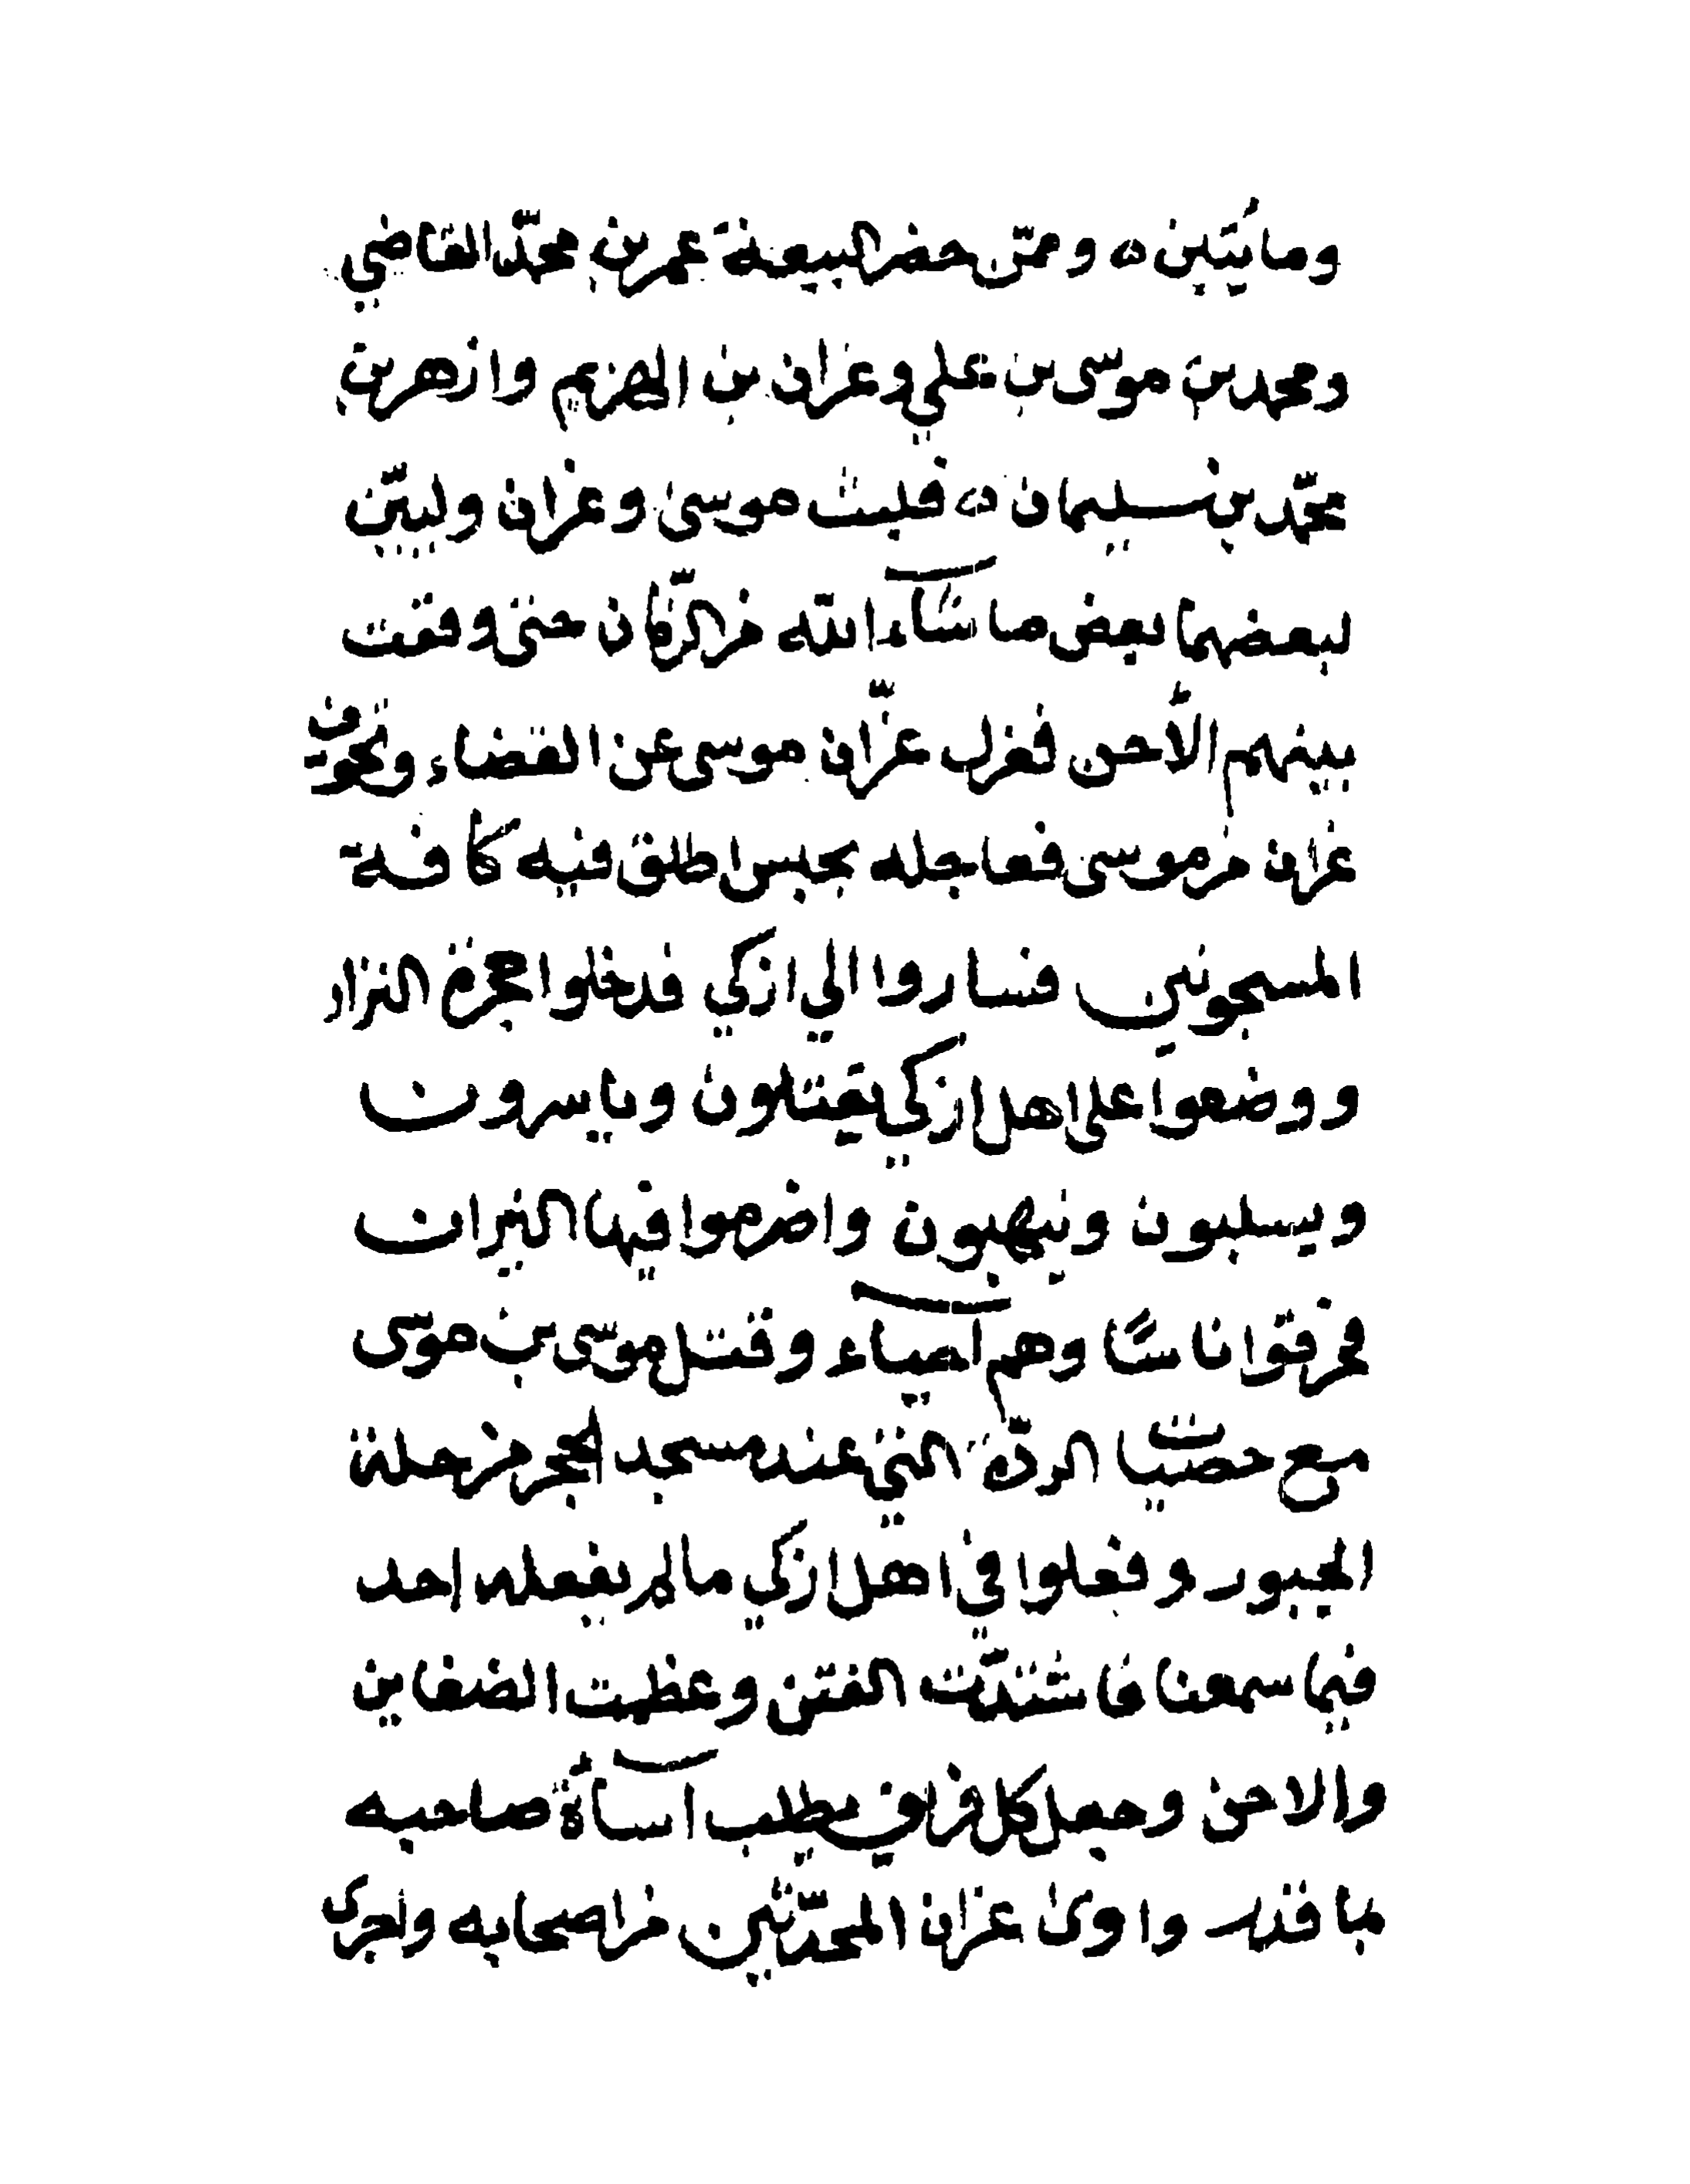 ومائتين ه وممّن حضر البيعة عمر بن محمّد القاضي
ومحمد بن موسى بن علي وعزان بن الهزيم وازهر بن
محمّد بن سليمان ه فلبث موسى وعزان وليّين
لبعضهما بعض ما شآء الله من الزّمان حتى وقعت
بينهم الأحن فعزل عزّان موسى عن القضاء وتخوف
عزان من موسى فعاجله بحبس اطلق فيه كافة
المسجونين فساروا الي ازكي فدخلوا حجرة النزار
ووضعوا على اهل ازكي يقتلون وياسرون
ويسلبون وينهبون واضرموا فيها النيران
فحرقوا ناسًا وهم أحياء وقتل موسى بن موسى
مع حصيات الردّة التي عند مسجد الحجر من حلة
الجبور وفعلوا في اهل ازكي ما لم يفعله احد
فيما سمعنا فاشتدّت الفتن وعظمت الضغاين
والاحن وجعل كل فريق يطلب آساءة صاحبه
بما قدر واوى عزان المحدّثين من اصحابه واجرى